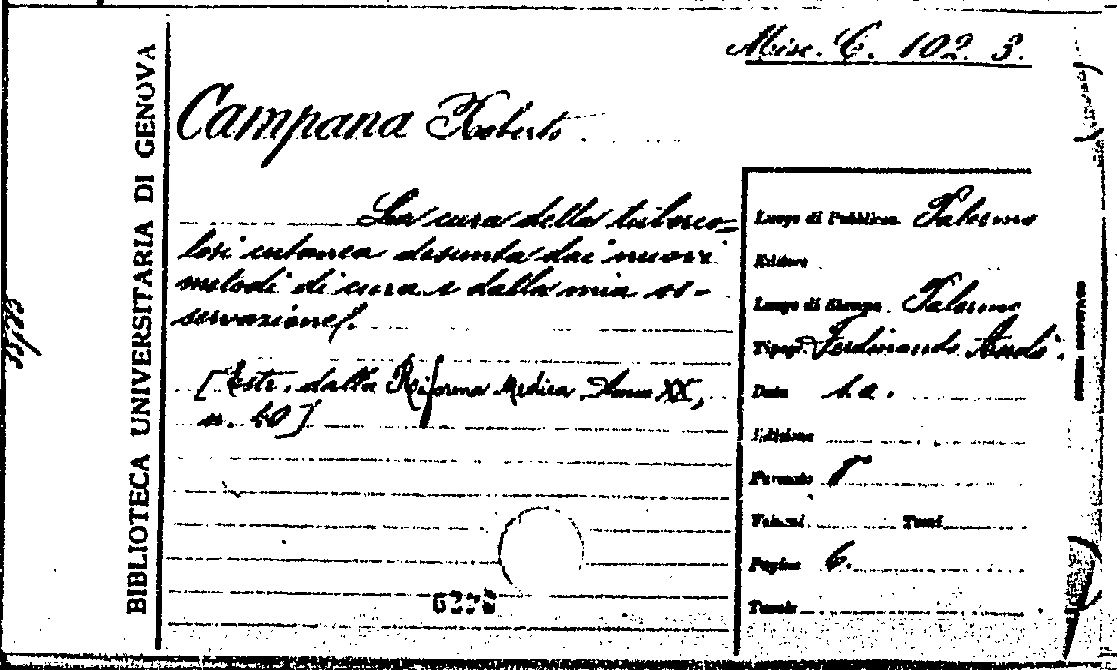 Misc. C. 102. 3.
BIBLIOTECA UNIVERSITARIA DI GENOVA
Campana Roberto
La cura della tuberco=
losi cutanea desunta dai nuovi
metodi di cura e dalla mia os-
servazione.
[Estr. dalla Riforma Medica Anno XX,
n. 40]
Luogo di Pubblicaz. Palermo
Editore
Luogo di Stampa Palermo
Tipogr. Ferdinando Andò.
Data s.a.
Edizione
Formato 8°
Volumi Tomi
Pagine 6.
Tavole